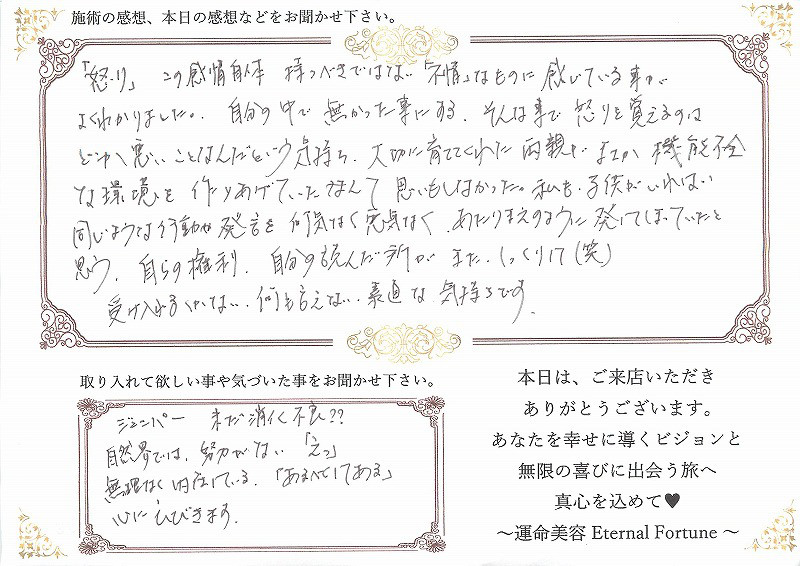 施術の感想、本日の感想などをお聞かせ下さい。
「怒り」 この感情自体 持つべきではない "不情"なものに 感じている事が
よくわかりました。 自分の中で 無かった事にする、そんな事で 怒りを覚えるのは
どこか悪いことなんだという気持ち、大切に育ててくれた両親が まさか 機能不全
な環境を 作りあげていたなんて 思いもしなかった。私も、子供がいれば
同じような行動や発言を 何気なく 悪気なく、あたりまえのように 発してしまっていたと
思う、自らの権利、自分の読んだ所が また、しっくりして(笑)
受け入れるしかない、何も言えない、素直な 気持ちです。
取り入れて欲しい事や気づいた事をお聞かせ下さい。
ジュニパー まだ消化不良??
自然界では、努力がない「えっ」
無理なく 内在している、「あるべくしてある」
心にひびきます。
本日は、ご来店いただき
ありがとうございます。
あなたを幸せに導くビジョンと
無限の喜びに出会う旅へ
真心を込めて♥
～運命美容 Eternal Fortune ～